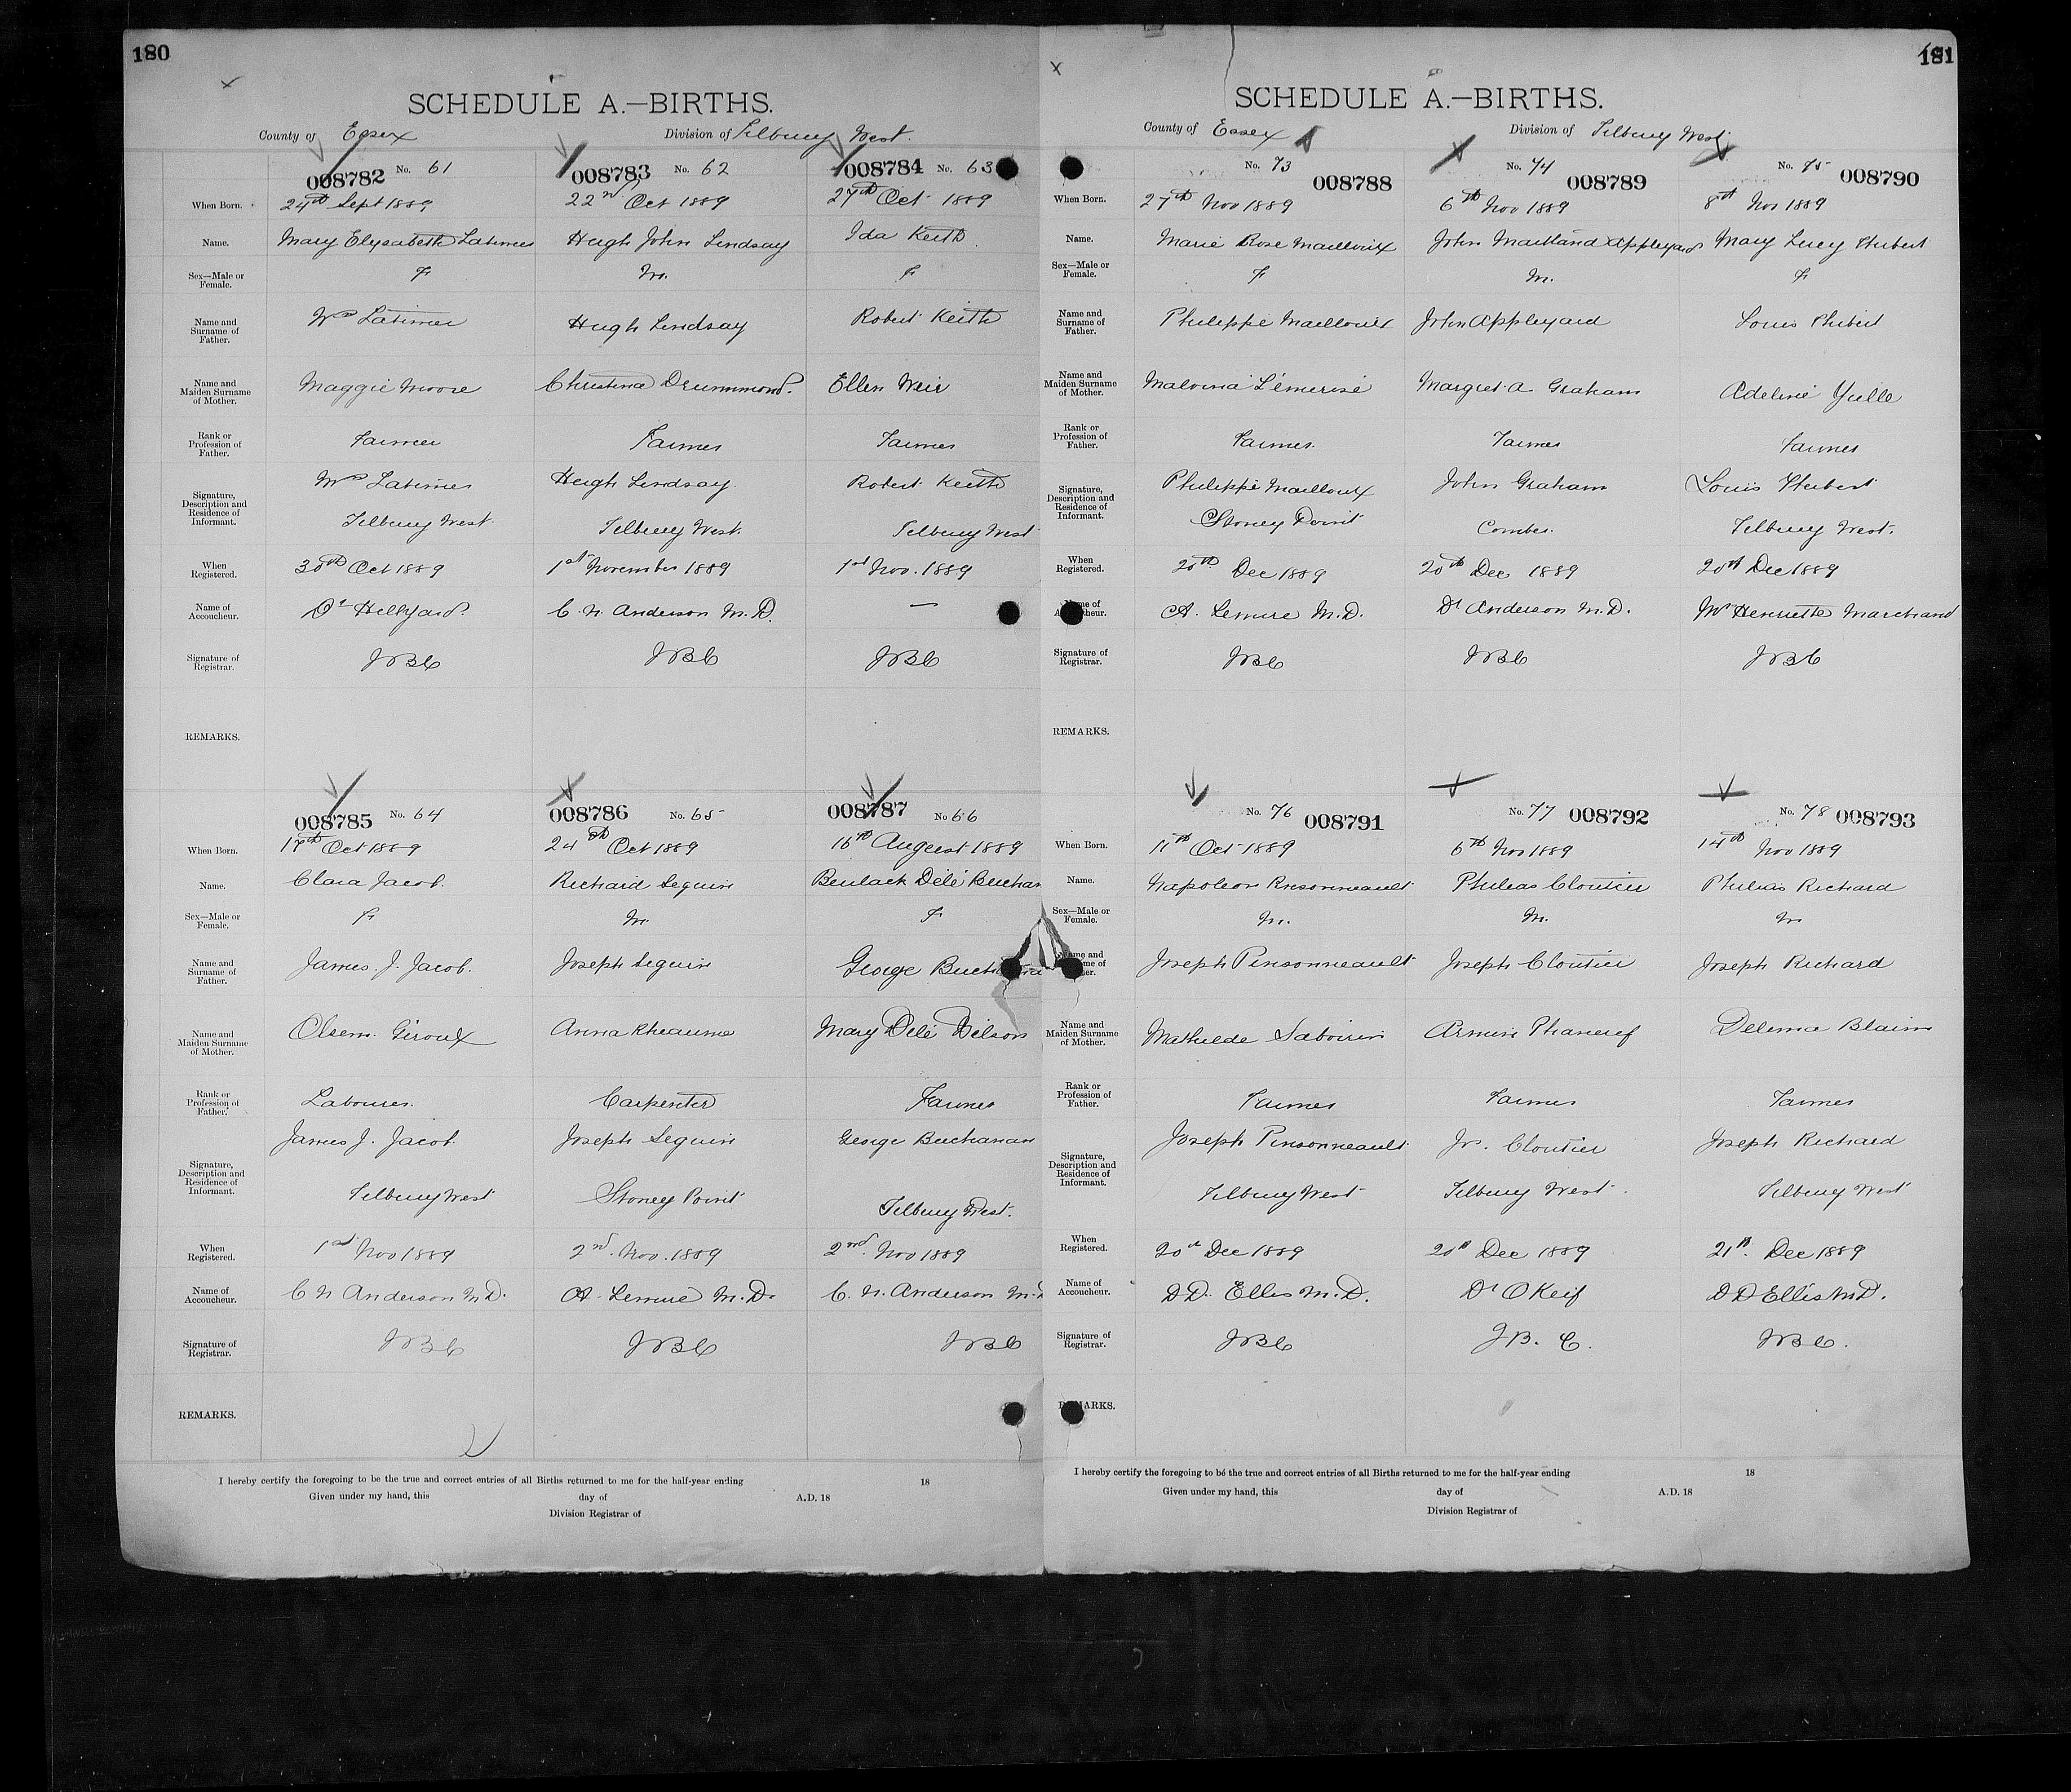 180
SCHEDULE A.—BIRTHS.
County of Essex Division of Tilbury West.
008782 No. 61 008783 No. 62 008784 No. 63
When Born. 24th Sept 1889 22nd Oct 1889 27th Oct 1889
Name. Mary Elysabeth Latimer Hugh John Lindsay Ida Keith
Sex—Male or Female. F M. F
Name and Surname of Father. Wm Latimer Hugh Lindsay Robert Keith
Name and Maiden Surname of Mother. Maggie Moore Christina Drummond. Ellen Weir
Rank or Profession of Father. Farmer Farmer Farmer
Signature, Description and Residence of Informant. Wm Latimer Hugh Lindsay. Robert Keith
Tilbury West Tilbury West. Tilbury West
When Registered. 30th Oct 1889 1st November 1889 1st Nov. 1889
Name of Accoucheur. Dr Hillyard. C. N. Anderson M.D. —
Signature of Registrar. JBC JBC JBC
REMARKS.
008785 No. 64 008786 No. 65 008787 No 66
When Born. 17th Oct 1889 24th Oct 1889 16th August 1889
Name. Clara Jacob. Richard Seguin Beulack Délé Buchan
Sex—Male or Female. F M. F
Name and Surname of Father. James. J. Jacob. Joseph Seguin George
Name and Maiden Surname of Mother. Olsem. Giroux Anna Rheaume Mary Délé Wilson
Rank or Profession of Father. Labourer. Carpenter Farmer
Signature, Description and Residence of Informant. James J. Jacob. Joseph Seguin George Buchanan
Tilbury West Stoney Point Tilbury West.
When Registered. 1st Nov 1889 2nd. Nov. 1889 2nd. Nov 1889
Name of Accoucheur. C N Anderson M.D. A. Lemire M.D. C. N. Anderson
Signature of Registrar. JBC JBC JBC
REMARKS.
I hereby certify the foregoing to be the true and correct entries of all Births returned to me for the half-year ending 18
Given under my hand, this day of A.D. 18
Division Registrar of
181
SCHEDULE A.—BIRTHS.
County of Essex Division of Tilbury West
No. 73 008788 No. 74 008789 No. 75 008790
When Born. 27th Nov 1889 6th Nov 1889 8th Nov 1889
Name. Marie Rose Mailloux John Maitland Appleyard Mary Lucy Hubert
Sex—Male or Female. F M. F
Name and Surname of Father. Philippe Mailloux John Appleyard Louis Hubert
Name and Maiden Surname of Mother. Malvina Lémerise Margret A Graham Adeline Yulle
Rank or Profession of Father. Farmer. Farmer Farmer
Signature, Description and Residence of Informant. Philippe Mailloux John Graham Louis Hubert
Stoney Point Comber. Tilbury West.
When Registered. 20th Dec 1889 20th Dec 1889 20th Dec 1889
Name of A. Lemire M.D. Dr Anderson M.D. Henriette Marchand
Signature of Registrar. JBC JBC JBC
REMARKS.
No. 76 008791 No. 77 008792 No. 78 008793
When Born. 11th Oct 1889 6th Nov 1889 14th Nov 1889
Name. Napoleon Pinsonneault Phileas Cloutier Phileas Richard
Sex—Male or Female. M. M. M
Joseph Pinsonneault Joseph Cloutier Joseph Richard
Name and Maiden Surname of Mother. Mathilde Sabourin Armine Phaneuf Delima Blain
Rank or Profession of Father. Farmer Farmer Farmer
Signature, Description and Residence of Informant. Joseph Pinsonneault Jos. Cloutier Joseph Richard
Tilbury West Tilbury West. Tilbury West
When Registered. 20th Dec 1889 20th Dec 1889 21st. Dec 1889
Name of Accoucheur. D.D. Ellis M.D. Dr OKeif D D Ellis M.D.
Signature of Registrar. JBC J B. C. JBC.
REMARKS.
I hereby certify the foregoing to be the true and correct entries of all Births returned to me for the half-year ending 18
Given under my hand, this day of A.D. 18
Division Registrar of